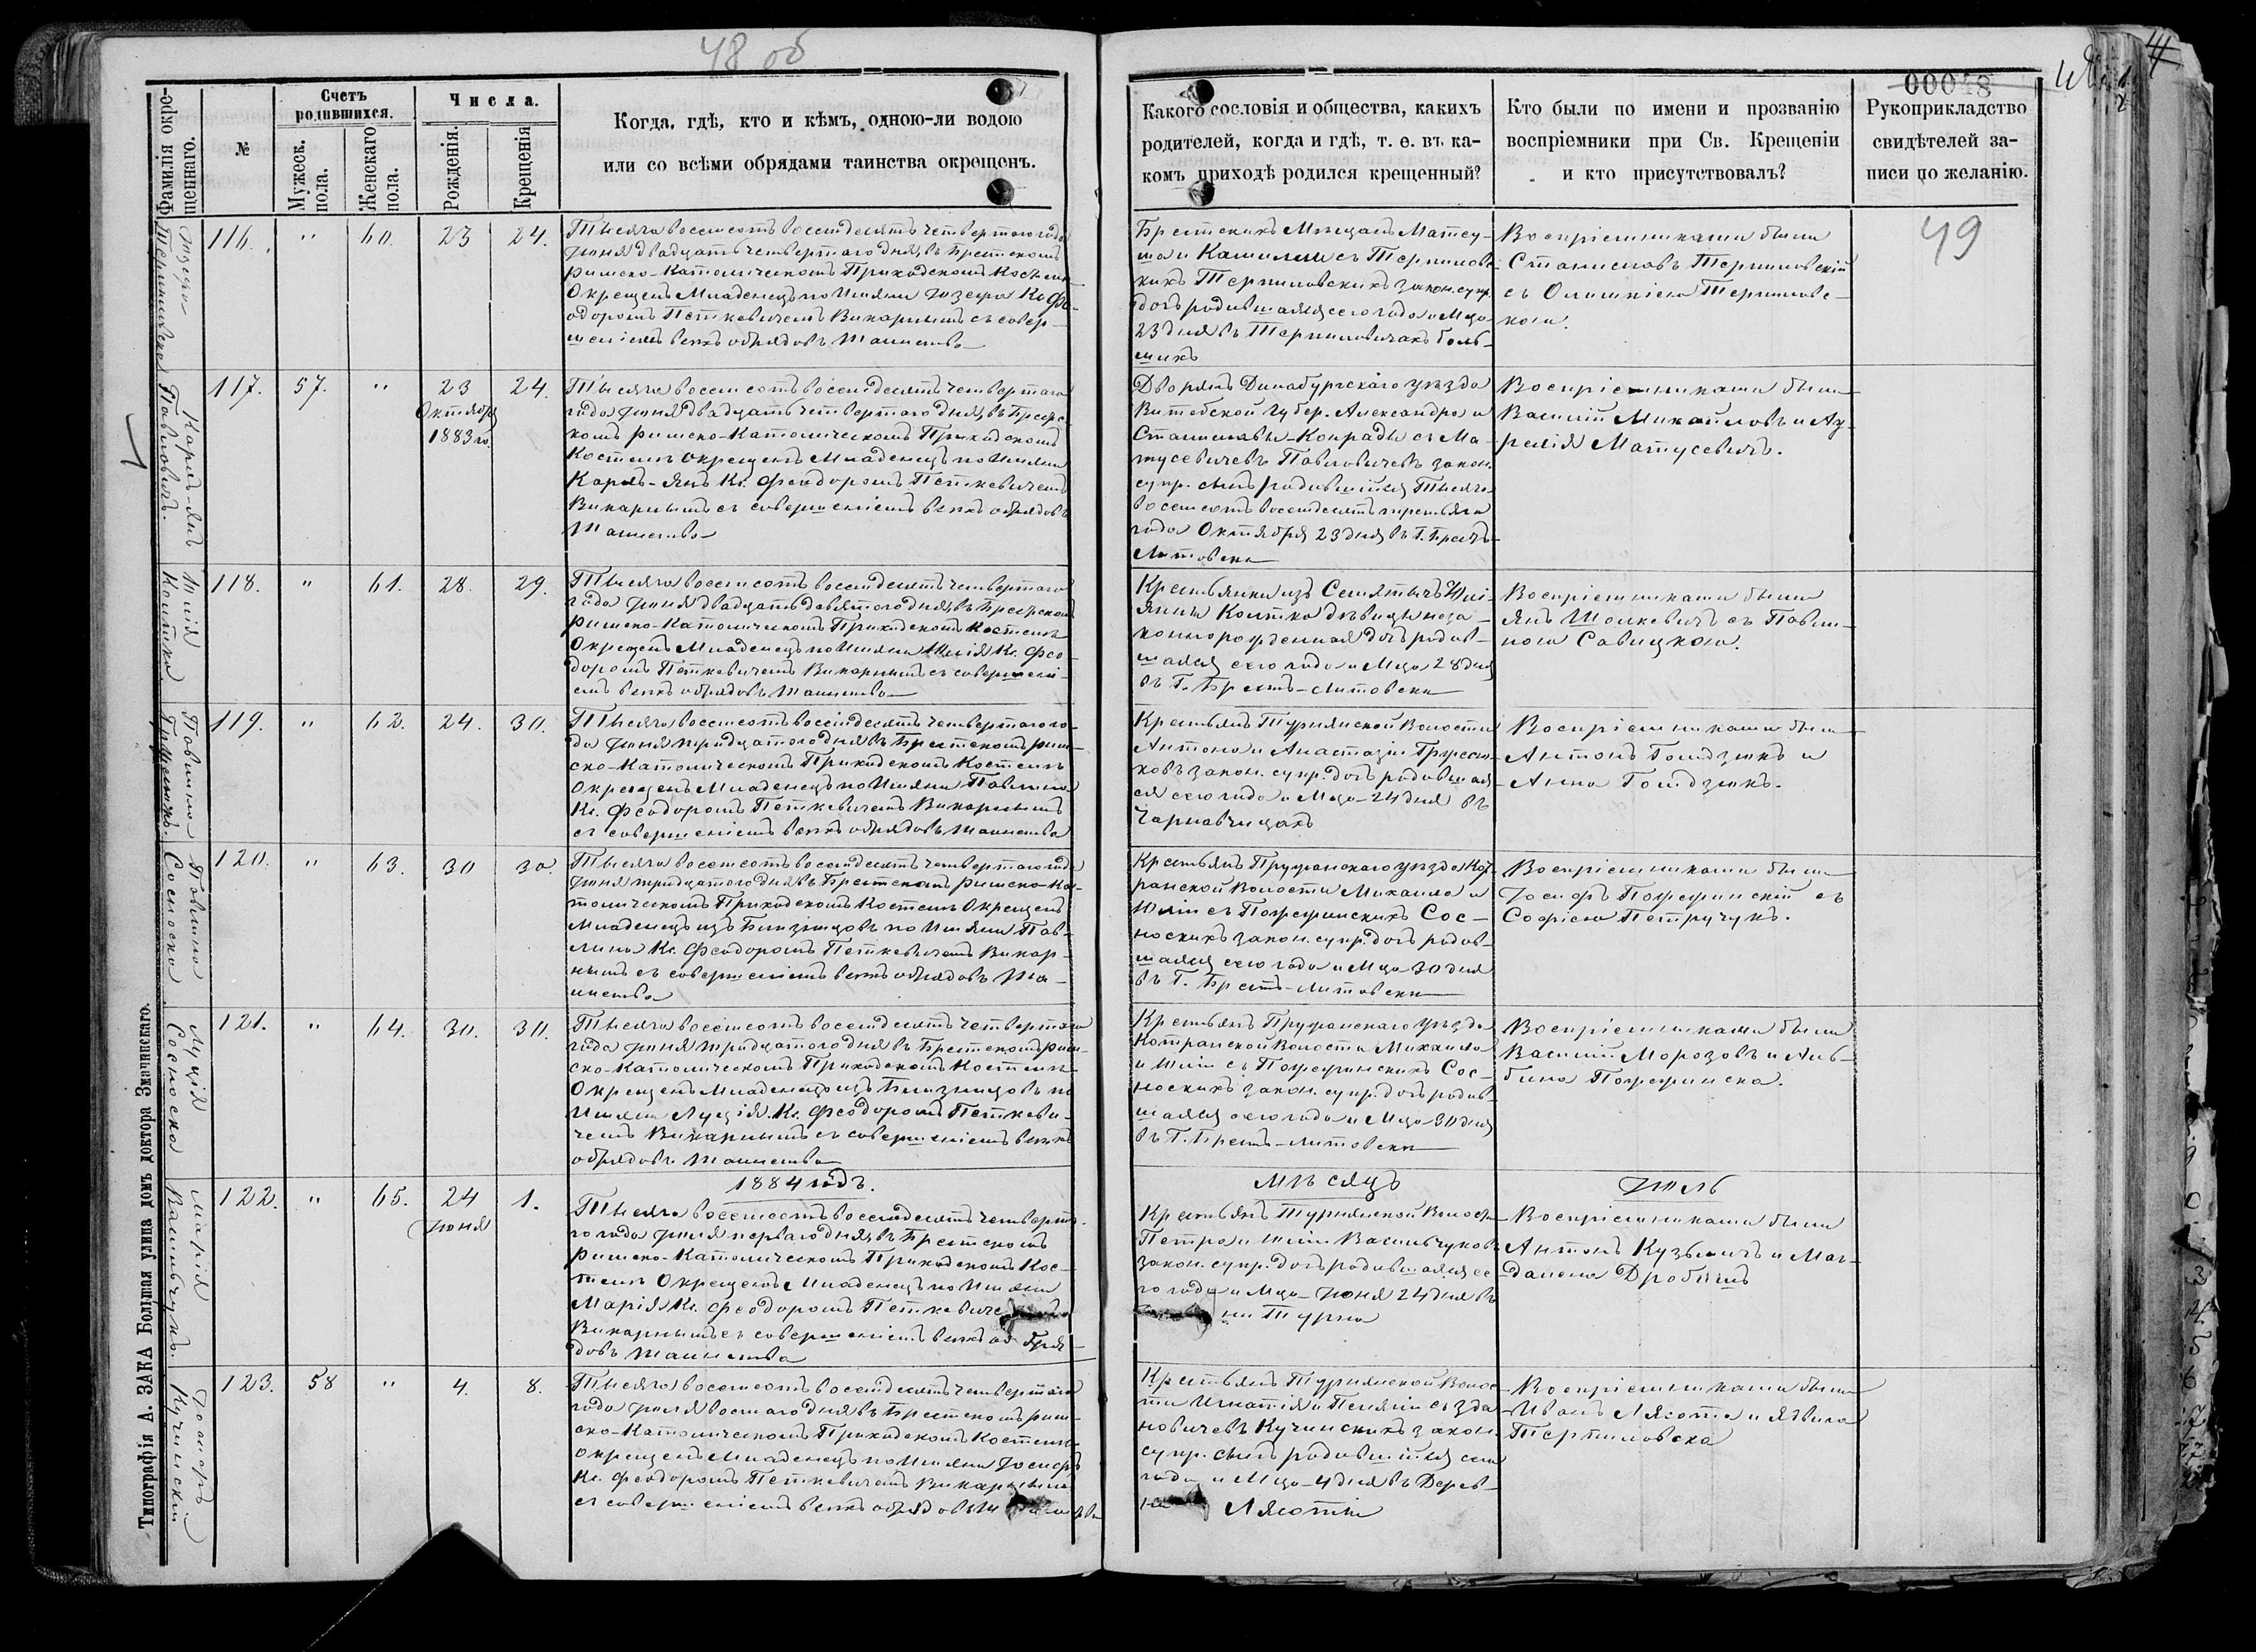 48 об
Фамилія окре-
щеннаго.
№
Счетъ
родившихся.
Мужеск.
пола.
Женскаго
пола.
Числа.
Рожденія.
Крещенія
Когда, гдѣ, кто и кѣмъ, одною-ли водою
или со всѣми обрядами таинства окрещенъ.
116. " 60. 23 24.
Тысяча восемсотъ восемдесятъ четвертаго года
Іюня двадцать четвертаго дня, въ Брестскомъ
Римско-Католическомъ Приходскомъ
Окрещенъ Младенецъ по Имяни Іозефа Кс. Фе-
одоромъ Петкевичемъ Викарнымъ съ совер-
шеніемъ всѣхъ обрядовъ Таинства
Карлъ-Янъ
Павловичъ.
117. 57. " 23 24.
Октября
1883 го.
Тысяча восемсотъ восемдесятъ четвертаго
года Іюня двадцать четвертаго дня, въ
комъ Римско-Католическомъ Приходскомъ
Костелѣ Окрещенъ Младенецъ по Имяни
Карлъ-Янъ Кс. Феодоромъ Петкевичемъ
Викарнымъ съ совершеніемъ всѣхъ обрядовъ
Таинства
118. " 61. 28. 29.
Тысяча восемсотъ восемдесятъ четвертаго
года Іюня двадцать девятого дня, въ
Римско-Католическомъ Приходскомъ Костелѣ
Окрещенъ Младенецъ по Имяни Юлія Кс. Фео-
доромъ Петкевичемъ Викарнымъ съ совершені-
емъ всѣхъ обрядовъ Таинства
119. " 62. 24. 30.
Тысяча восемсотъ восемдесятъ четвертаго го-
да Іюня тридцатого дня въ Брестскомъ Рим-
ско-Католическомъ Приходскомъ Костелѣ
Окрещенъ Младенецъ по Имяни Павлина
Кс. Феодоромъ Петкевичемъ Викарнымъ
съ совершеніемъ всѣхъ обрядовъ Таинства
Павлина
Сосноска
120. " 63. 30 30.
Тысяча восемсотъ восемдесятъ четвертаго года
Іюня тридцатого дня въ Брестскомъ Римско-Ка-
толическомъ Приходскомъ Костелѣ Окрещенъ
Младенецъ изъ Близнцовъ по Имяни Пав-
лина Кс. Феодоромъ Петкевичемъ Викар-
нымъ съ совершеніемъ всѣхъ обрядовъ Та-
инства
Луція
Сосноска
121. " 64. 30. 30.
Тысяча восемсотъ восемдесятъ четвертаго
года Іюня тридцатого дня въ Брестскомъ Рим-
ско-Католическомъ Приходскомъ Костелѣ
Окрещенъ Младенецъ изъ Близнцовъ по
Имяни Луція. Кс. Феодоромъ Петкеви-
чемъ Викарнымъ съ совершеніемъ всѣхъ
обрядовъ Таинства
1884 годъ.
Марія
Васильчукъ.
122. " 65. 24 1.
Іюня
Тысяча восемсотъ восемдесятъ четверта-
го года перваго дня, въ Брестскомъ
Римско-Католическомъ Приходскомъ Кос-
телѣ Окрещенъ Младенецъ по Имяни
Марія Кс. Феодоромъ
Викарнымъ съ совершеніемъ всѣхъ обря-
довъ Таинства
Іосифъ
Кучинскій
123. 58 " 4. 8.
Тысяча восемсотъ восемдесятъ четвертаго
года восмаго дня въ Брестскомъ Рим-
ско-Католическомъ Приходскомъ Костелѣ
Окрещенъ Младенецъ по Имяни Іосифъ
Кс. Феодоромъ Петкевичемъ Викарнымъ
съ совершеніемъ всѣхъ обрядовъ
Типографія А. ЗАКА Большая улица домъ доктора Значинскаго.
00048
Какого сословія и общества, какихъ
родителей, когда и гдѣ, т. е. въ ка-
комъ приходѣ родился крещенный?
Кто были по имени и прозванію
воспріемники при Св. Крещеніи
и кто присутствовалъ?
Рукоприкладство
свидѣтелей за-
писи по желанію.
49
Брестскихъ Мѣщанъ Матеу-
ша и Камиллы съ
закон. супр.
дочь родившаяся сего года и Мца
23 дня въ Терпиловичахъ боль-
шихъ
Воспріемниками были
Станиславъ Терпиловскій
съ Терпиловс-
кою.
Дворянъ Динабургскаго уѣзда
Витебской Губер. Александра и
Станиславы-Конрады съ Ма-
тусевичевъ Павловичевъ закон.
супр. сынъ родившійся Тысяча
восемсотъ восемдесятъ третьяго
года Октября 23 дня, въ Г. Брестъ-
Литовскѣ
Воспріемниками были
Василій Михайловъ и Ау-
релія Матусевичъ.
Крестьянки изъ Семятычъ Юлі-
янны Колтко дѣвицы неза-
коннорожденная дочь родив-
шаяся сего года и Мца 28 дня
въ Г. Брестъ-Литовскѣ
Воспріемниками были
Янъ съ Павли-
ною Савицкою.
Крестьянъ Турнянской Волости
Антона и Анастазіи
закон. супр. дочь родившая
ся сего года и Мца 24 дня въ
Чернавчицахъ
Воспріемниками были
Антонъ Гольдзюкъ и
Анна Гольдзюкъ.
Крестьянъ Пружанскаго уѣзда
Волости Михаила и
Юліи съ Сос-
носкихъ закон. супр. дочь родив-
шаяся сего года и Мца 30 дня
въ Г. Брестъ-Литовскѣ
Воспріемниками были
Іосифъ съ
Софіею Петручукъ.
Крестьянъ Пружанскаго уѣзда
Волости Михаила
и Юліи съ Сос-
носкихъ закон. супр. дочь родив-
шаяся сего года и Мца 30 дня
въ Г. Брестъ-Литовскѣ
Воспріемниками были
Василій Морозовъ и Аль-
бина
Мѣсяцъ
Іюль
Крестьянъ Турнянской Волости
Петра и Юліи Васильчуковъ
закон. супр. дочь родившаяся се-
го года и Мца Іюня 24 дня въ
Турна
Воспріемниками были
Антонъ Кузьмичъ и Маг-
далена
Крестьянъ Турнянской Волос-
ти Игнатія и съ Зда-
новичевъ Кучинскихъ закон.
супр. сынъ родившійся сего
года и Мца 4 дня въ Дерев-
Воспріемниками были
Иванъ и Ядвига
Терпиловска